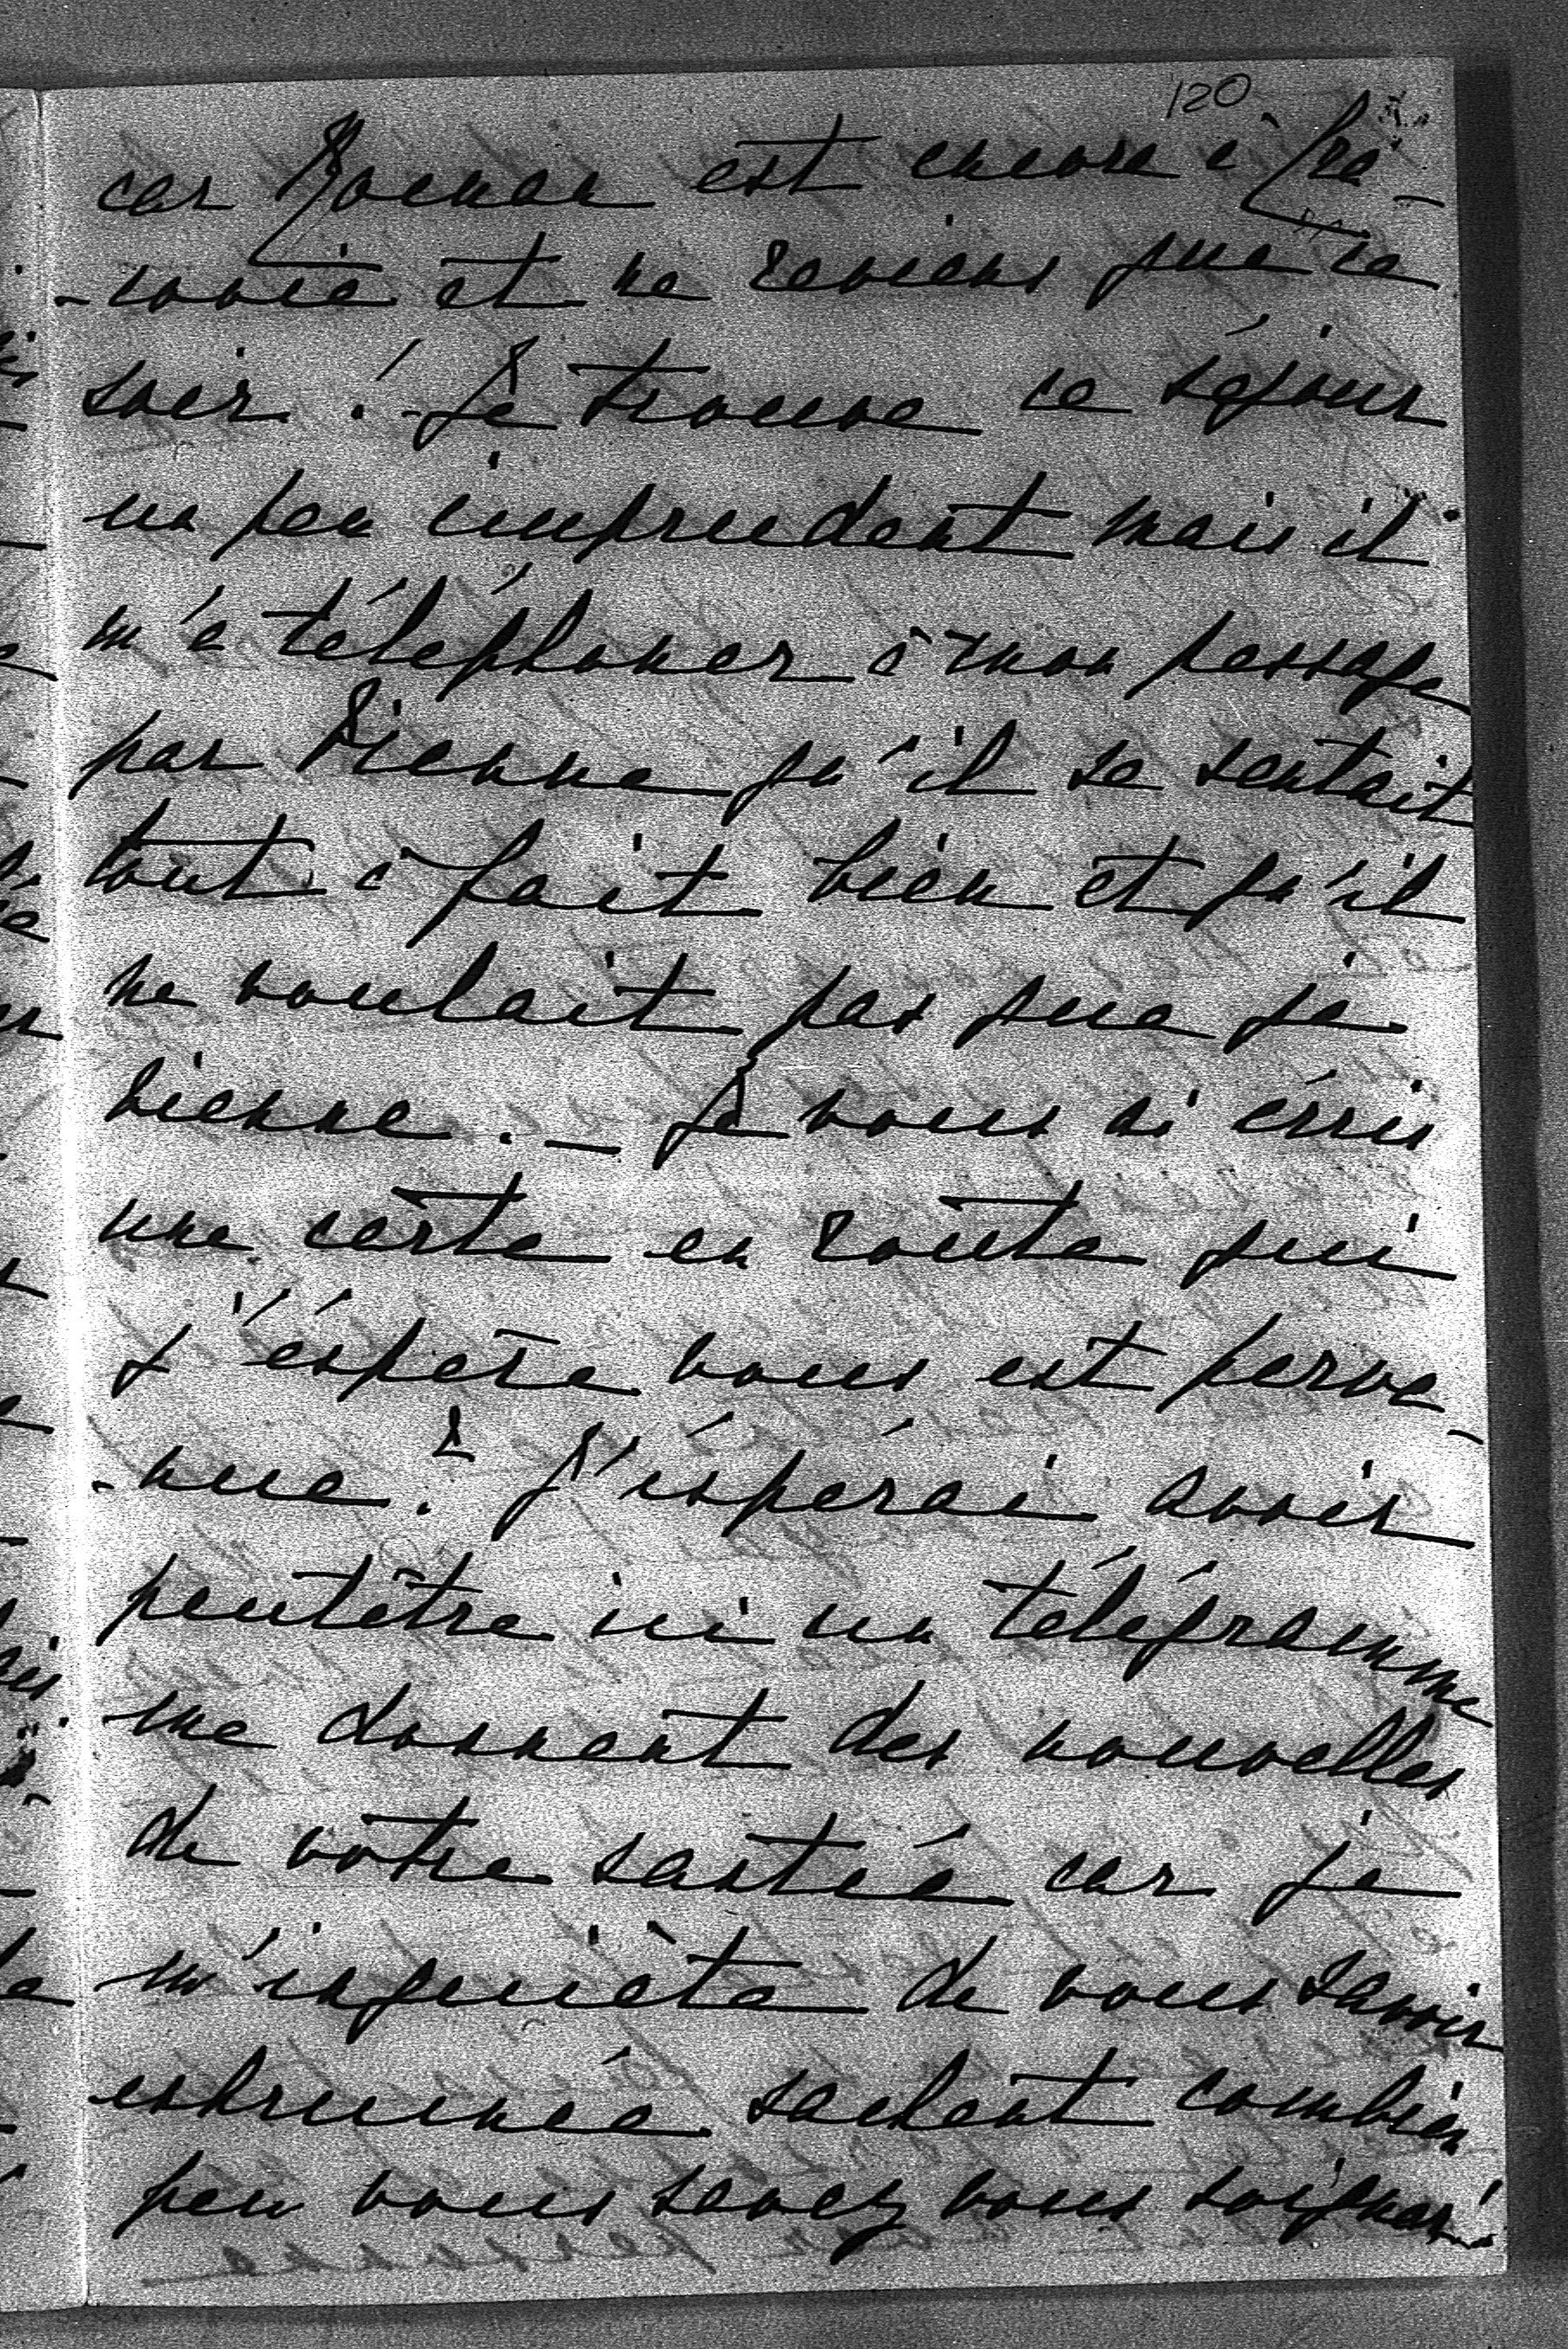 120
car Roman est encore à Cra-
-covie et ne reviens que ce
soir ! - Je trouve ce séjour
un peu imprudent mais il
m'a téléphoner à mon passage
par Vienne qu'il se sentait
tout à fait bien et qu'il
ne voulait pas que je
vienne. _ Je vous ai écris
une carte en route qui
j'éspère vous est parve-
-nue? J'éspérai avoir
peutêtre ici un télégramme
me donnant des nouvelles
de vôtre santée car je
m'inquiète de vous savoir
enhrumée sachant combien
peu vous savez vous soigner!